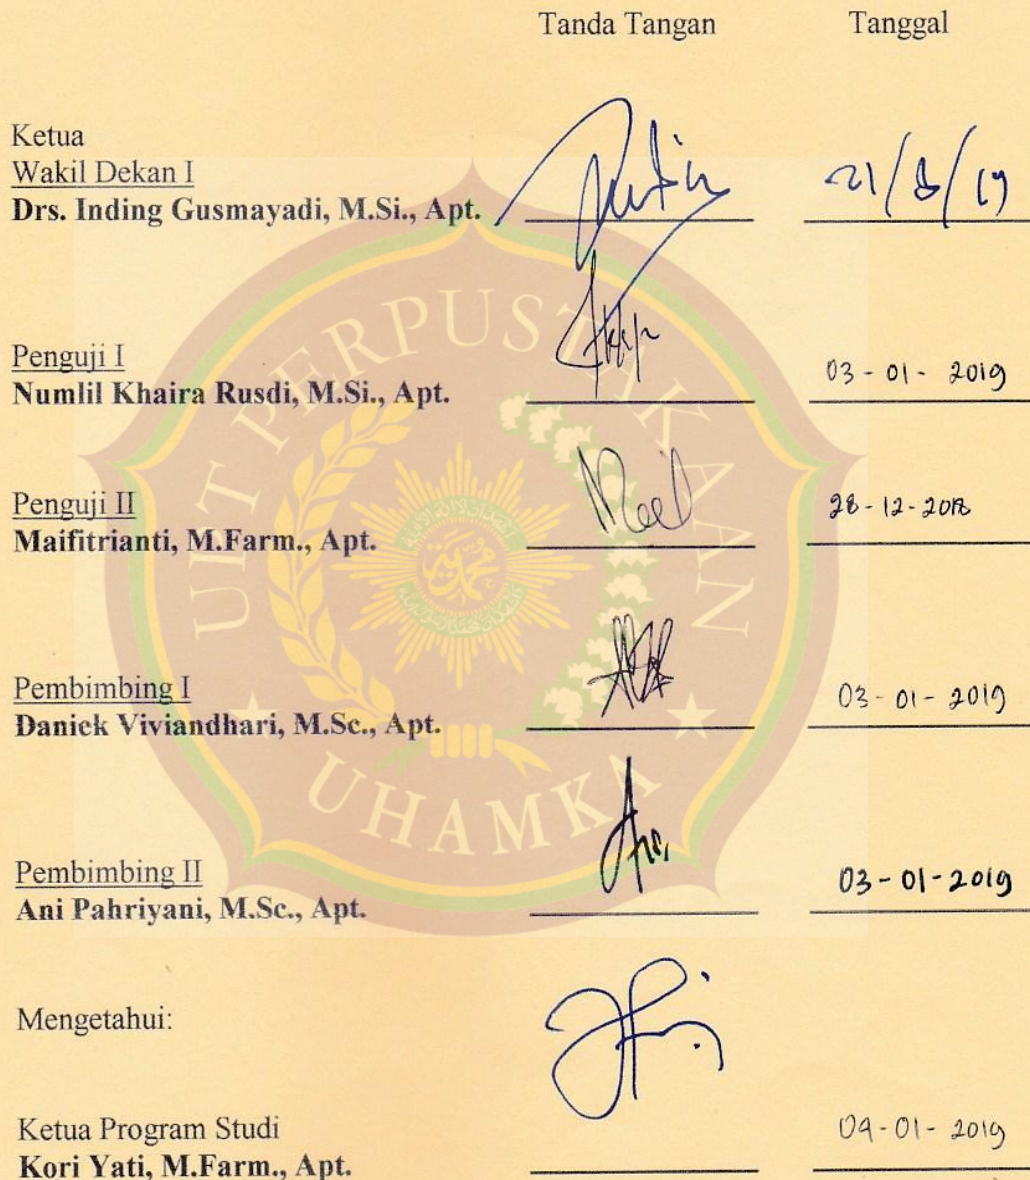 Tanda Tangan Tanggal
Ketua
Wakil Dekan I
Drs. Inding Gusmayadi, M.Si., Apt. 21/8/19
Penguji I
Numlil Khaira Rusdi, M.Si., Apt. 03-01-2019
Penguji II
Maifitrianti, M.Farm., Apt. 28-12-2018
Pembimbing I
Daniek Viviandhari, M.Sc., Apt. 03-01-2019
Pembimbing II
Ani Pahriyani, M.Sc., Apt. 03-01-2019
Mengetahui:
Ketua Program Studi
Kori Yati, M.Farm., Apt. 04-01-2019
UPT PERPUSTAKAAN
UHAMKA